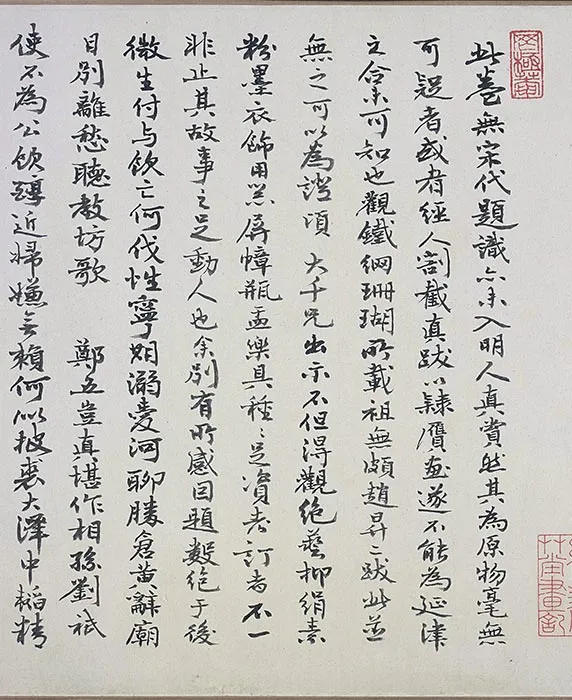 此卷無宋代題識亦未入明人真賞然其為原物毫無
可疑者或者經人割截真跋以隸贗畫遂不能為延津
之合未可知也觀鐵網珊瑚所載祖無頗趙昇二跋此並
無之可以為證頃 大千兄出示不但得觀絕藝抑絹素
粉墨衣飾用器屏幛瓶盂樂具種〻足資考訂者不一
非止其故事之足動人也余別有所感因題數絕于後
微生付与飲亡何伐性寧溺愛河聊勝倉黃辭廟
日別離愁聽教坊歌 鄭五豈真堪作相孫劉祇
使不為公飲醇近婦嫌無賴何似披裘大澤中韜精